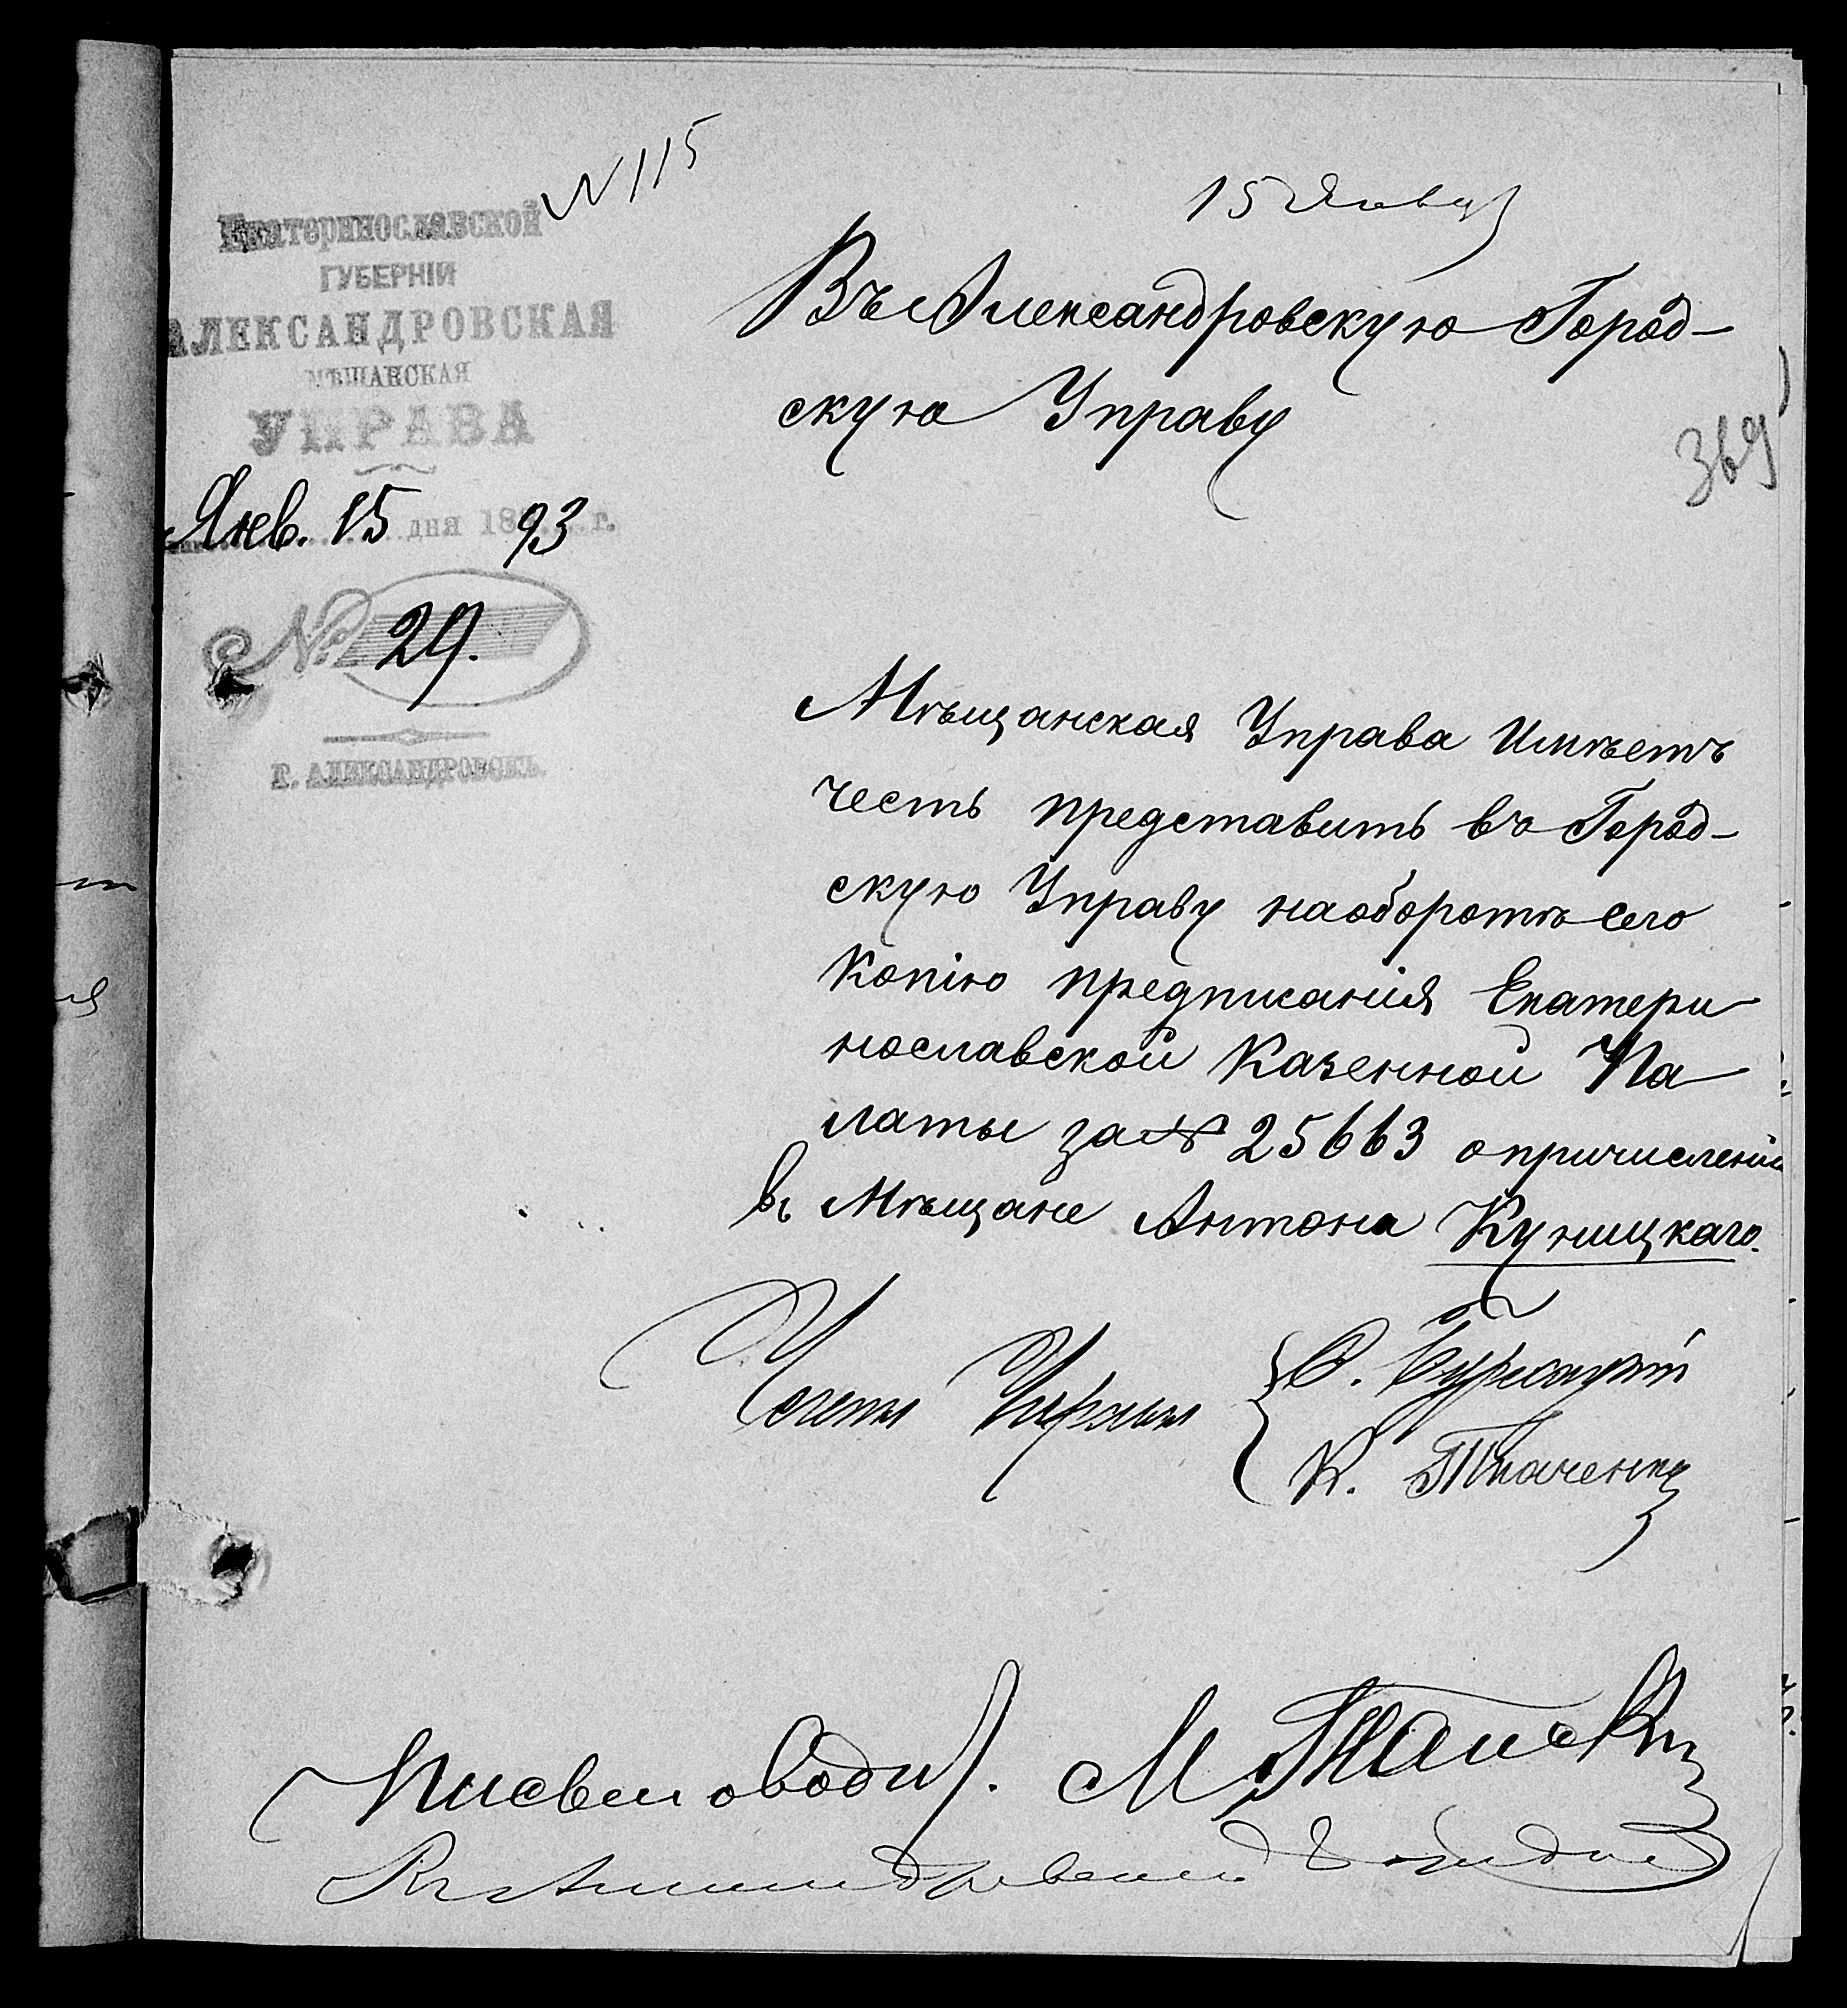 № 115
15 Январ
Екатеринославской
ГУБЕРНІИ
АЛЕКСАНДРОВСКАЯ
МѢЩАНСКАЯ
УПРАВА
Янв. 15 дня 1893 г.
№ 29.
Г. АЛЕКСАНДРОВСКЪ.
Въ Александровскую Город-
скую Управу
369
Мѣщанская Управа Имѣетъ
честь представить въ Город-
скую Управу на оборотѣ сего
Копію предписанія Екатери
нославской Казенной Па
латы за № 25663 о причисленіи
въ Мѣщане Антона Куницкаго.
Члены Управы
К. Ткаченко
Письмоводит. М.